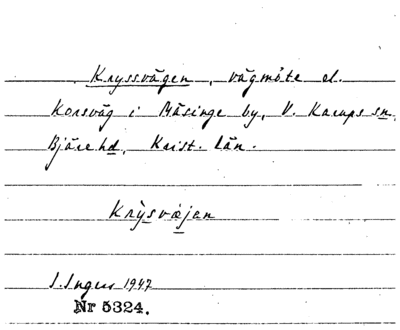 Kryssvägen, vägmöte el.
Korsväg i Mäsinge by, V. Karups sn.
Bjäre hd, Krist. län.
Krỳsvæjan
S. Ingers 1947
Nr 5324.